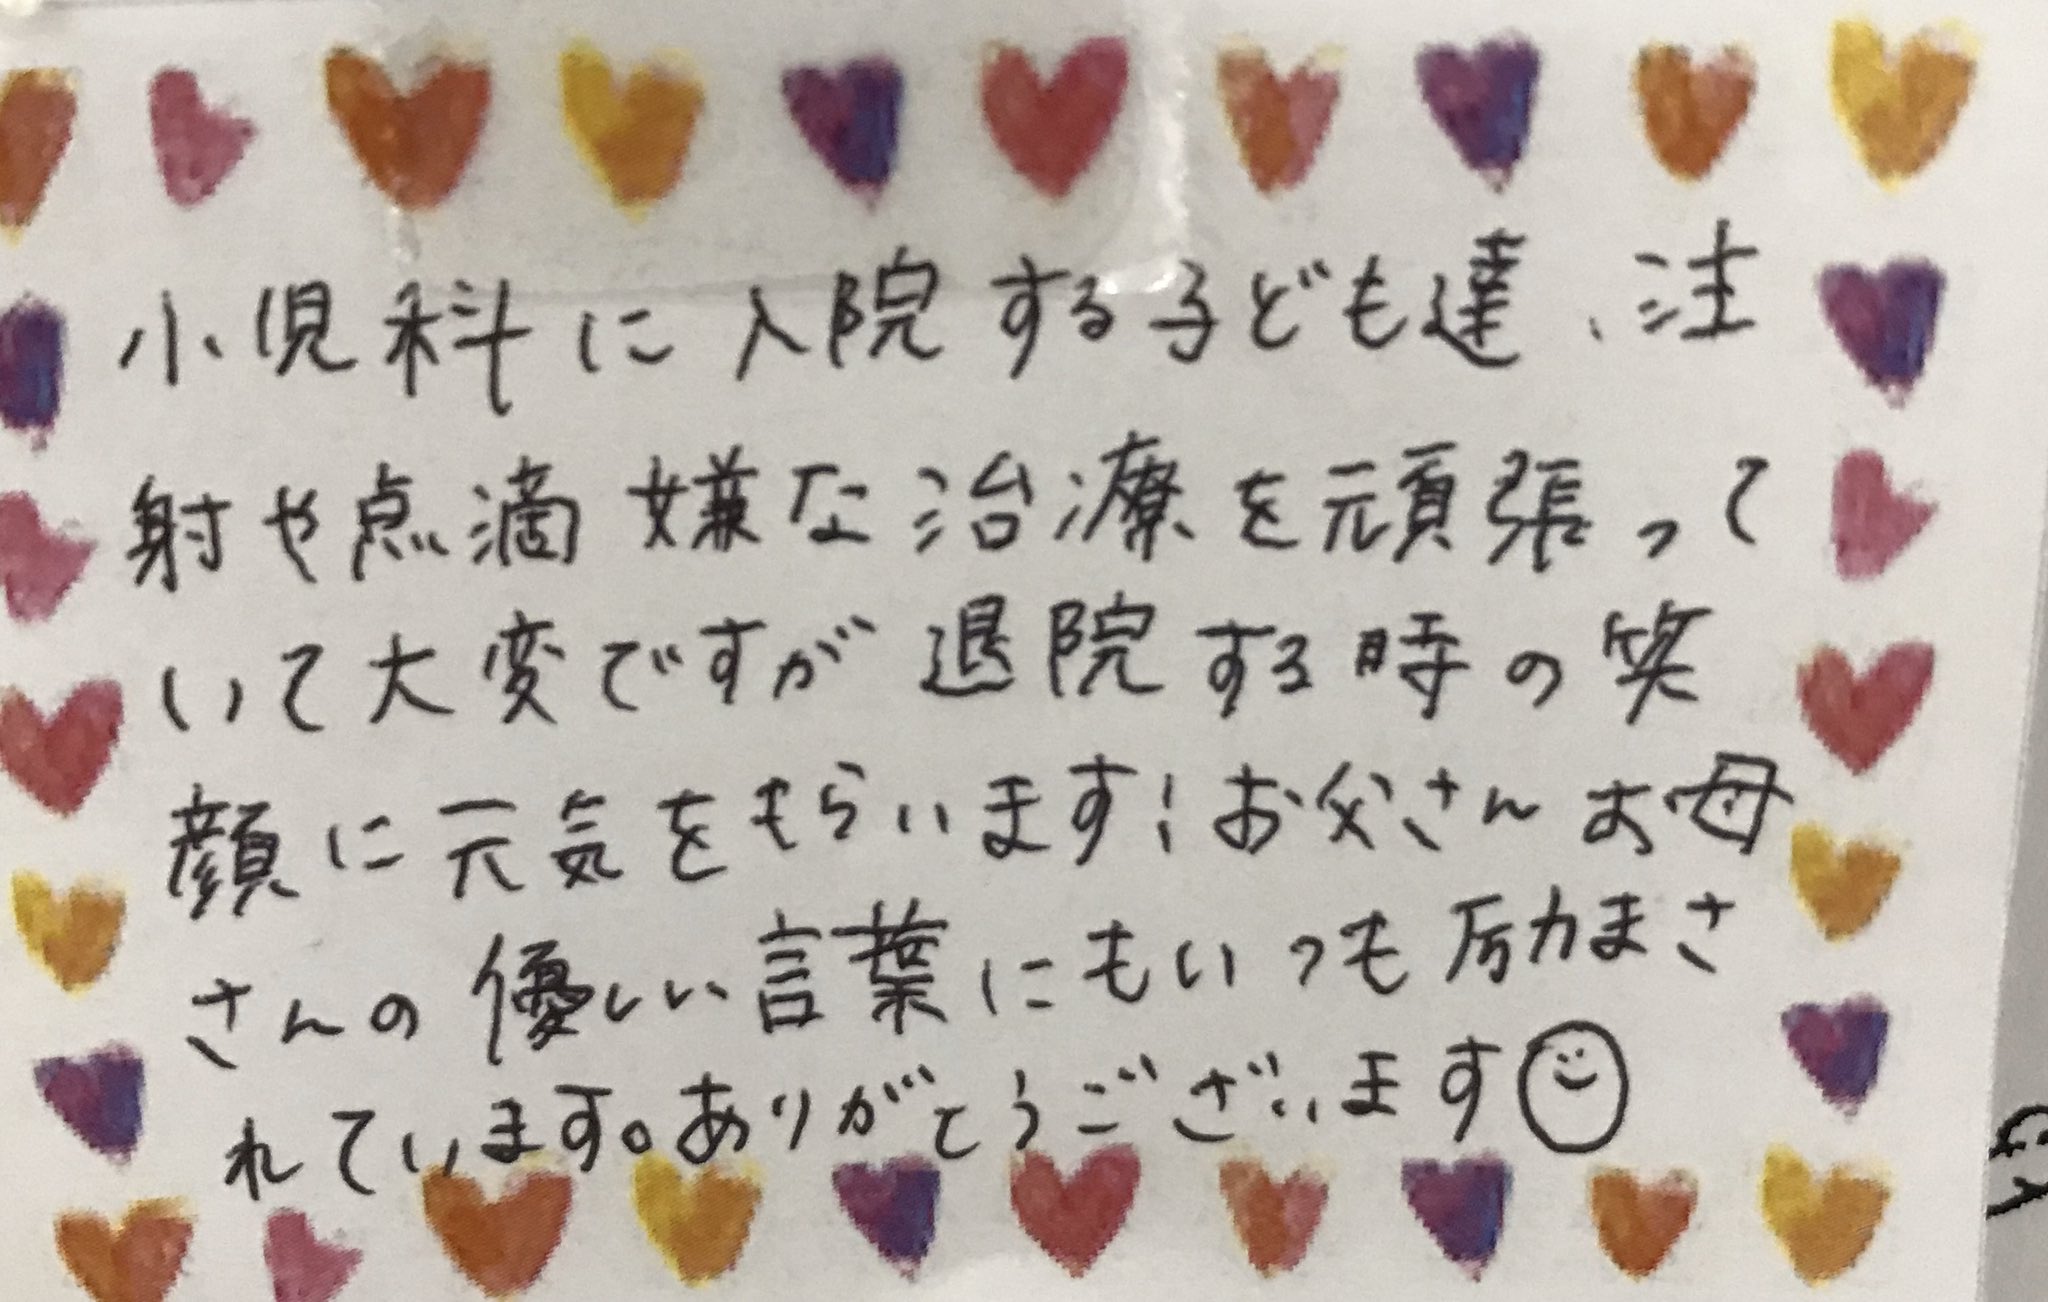 小児科に入院する子ども達、注
射や点滴嫌な治療を頑張って
いて大変ですが退院する時の笑
顔に元気をもらいます！お父さんお母
さんの優しい言葉にもいつも励まさ
れています。ありがとうございます